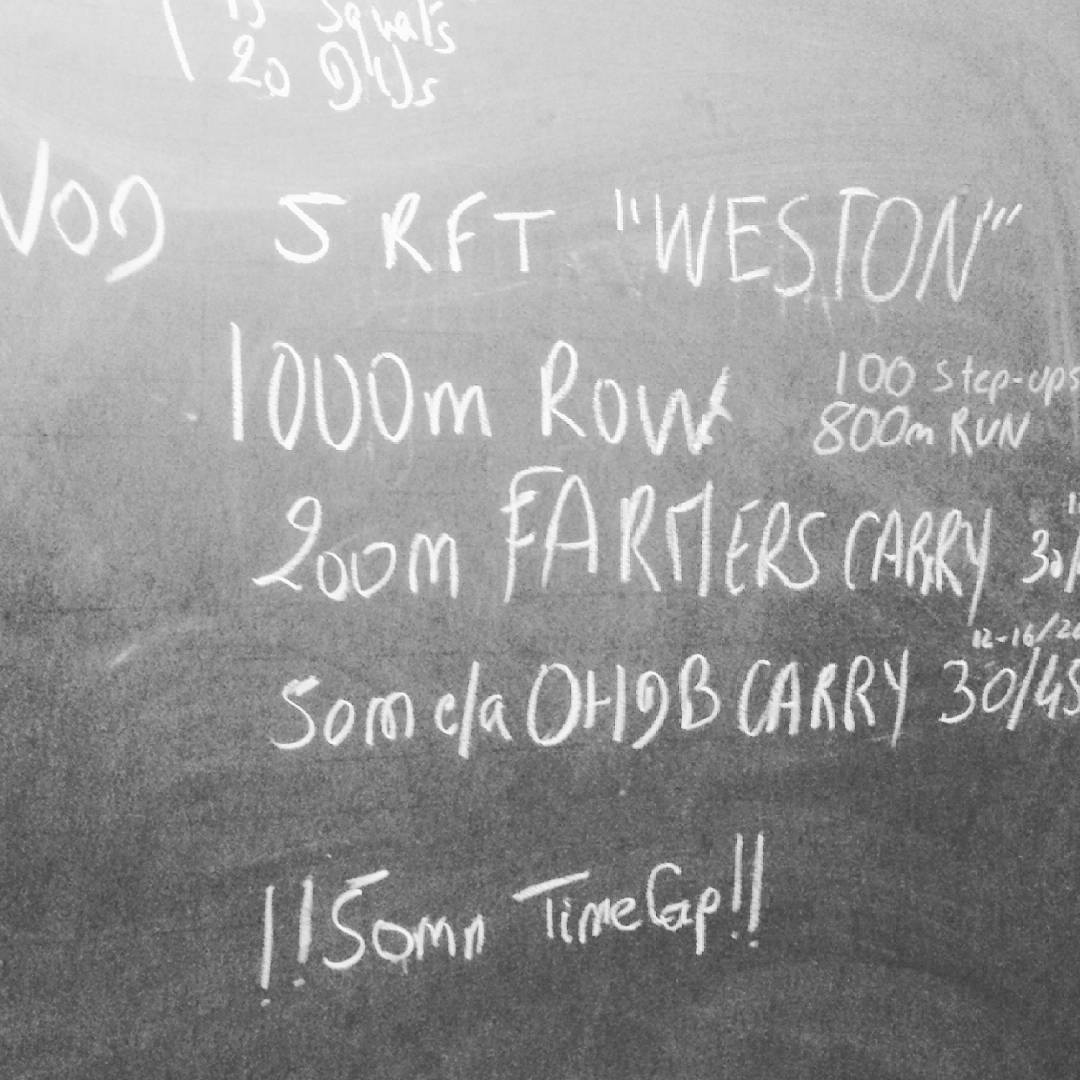 15 Squats
20 DUs
WOD 5 RFT "WESTON"
1000m ROW 100 Step-ups
800m RUN
200m FARMERS CARRY 30/
12-16/20
50m e/a OHDB CARRY 30/45
!!50mn Time Cap!!